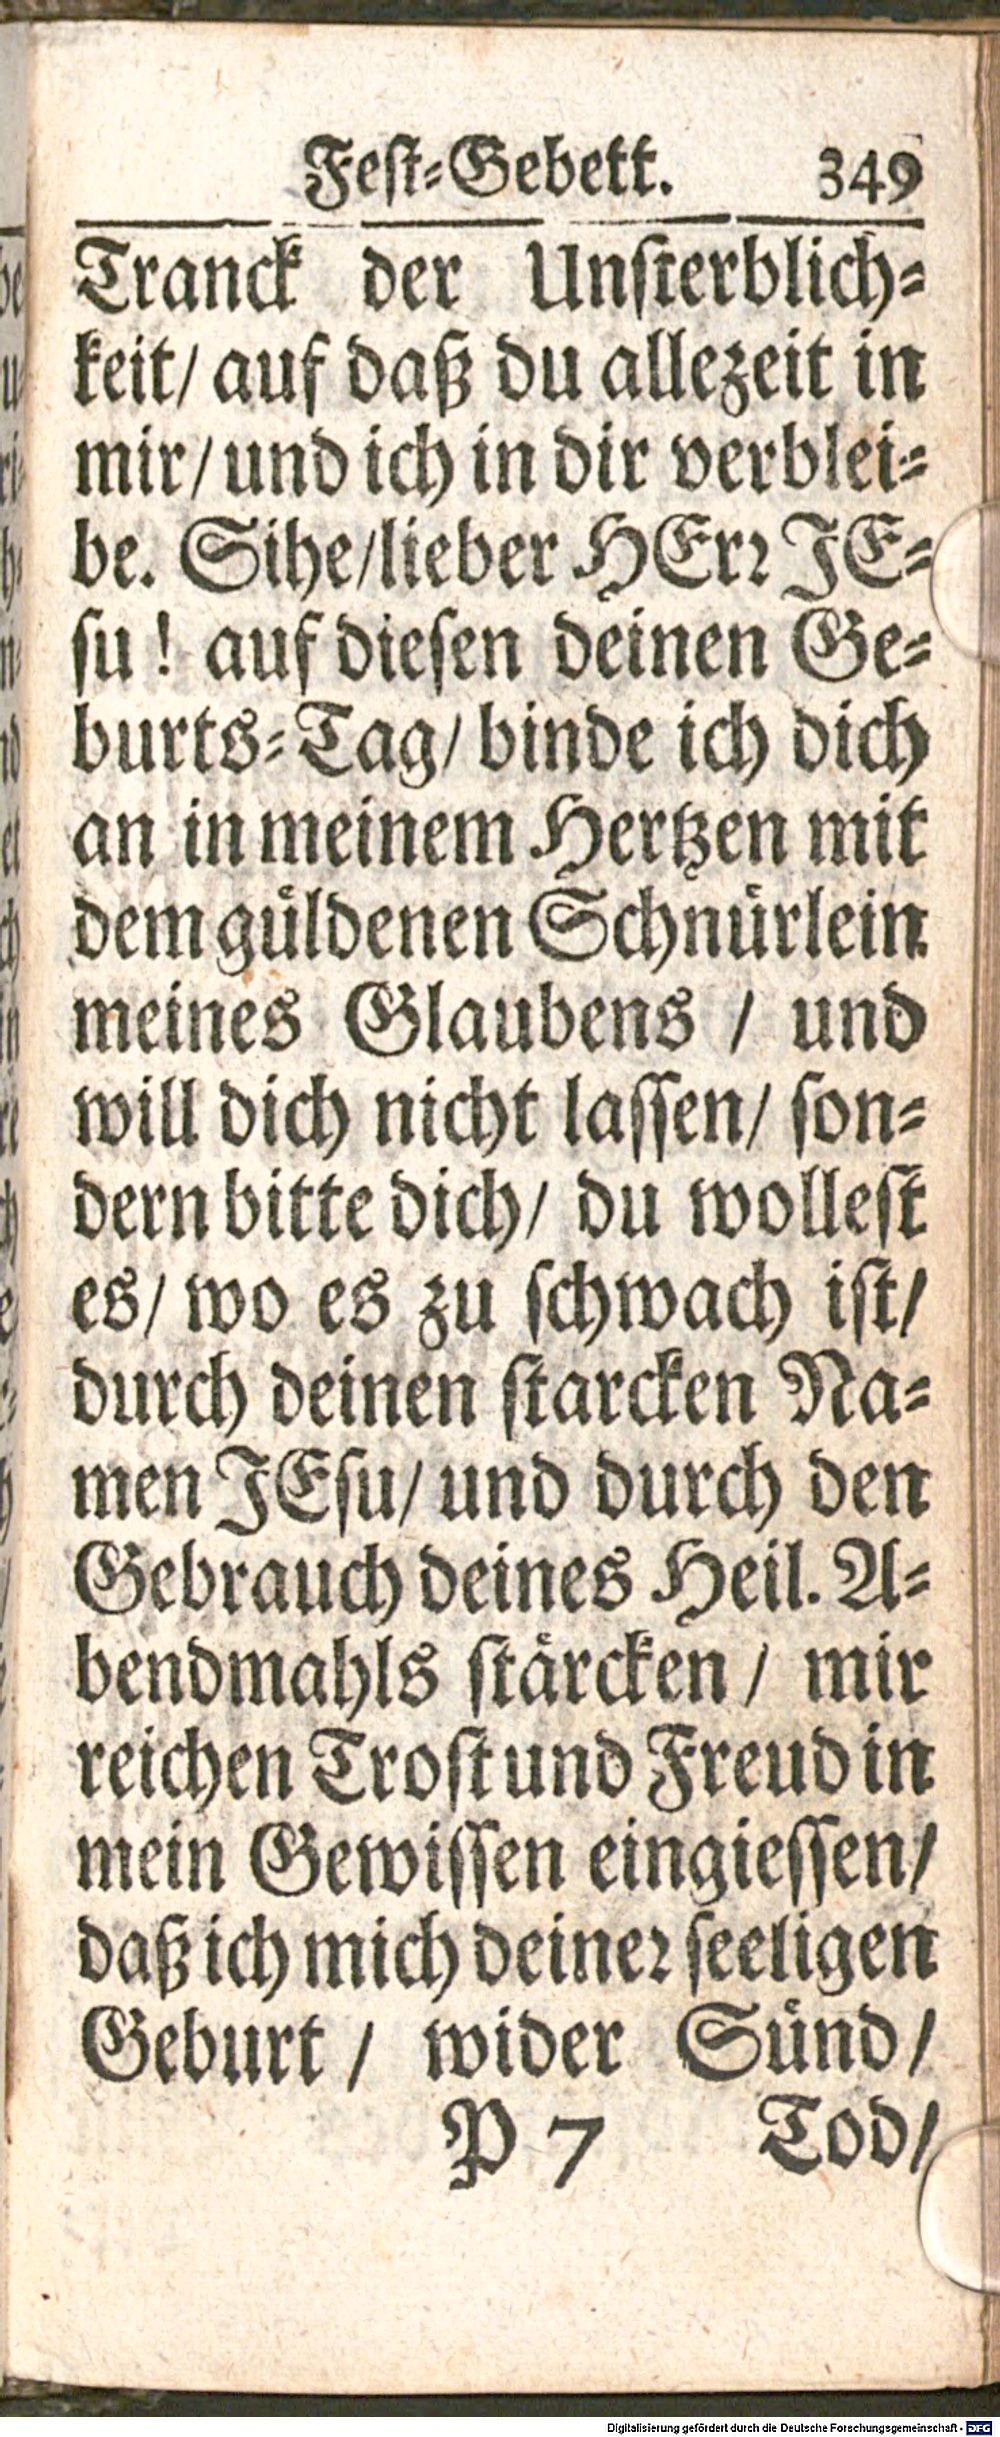 Fest-Gebett. 349
Tranck der Unsterblich-
keit/ auf daß du allezeit in
mir/ und ich in dir verblei-
be. Sihe/lieber HErr JE-
su! auf diesen deinen Ge-
burts-Tag/ binde ich dich
an in meinem Hertzen mit
dem güldenen Schnürlein
meines Glaubens / und
will dich nicht lassen/ son-
dern bitte dich/ du wollest
es/ wo es zu schwach ist/
durch deinen starcken Na-
men JEsu/ und durch den
Gebrauch deines Heil. A-
bendmahls stärcken / mir
reichen Trost und Freud in
mein Gewissen eingiessen/
daß ich mich deiner seeligen
Geburt / wider Sünd/
P 7 Tod/
Digitalisierung gefördert durch die Deutsche Forschungsgemeinschaft - DFG